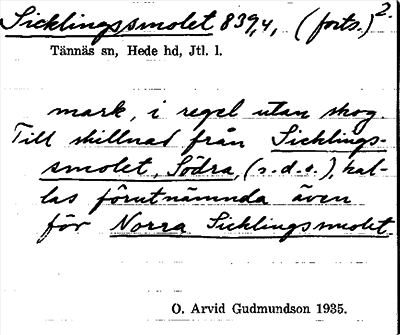 Sicklingssmolet 839,4, (forts.) 2.
Tännäs sn, Hede hd, Jtl. l.
mark, i regel utan skog.
Till skillnad från Sicklings-
smolet, Södra, (s.d.o.), kal-
las förutnämnda även
för Norra Sicklingsmolet.
O. Arvid Gudmundson 1935.